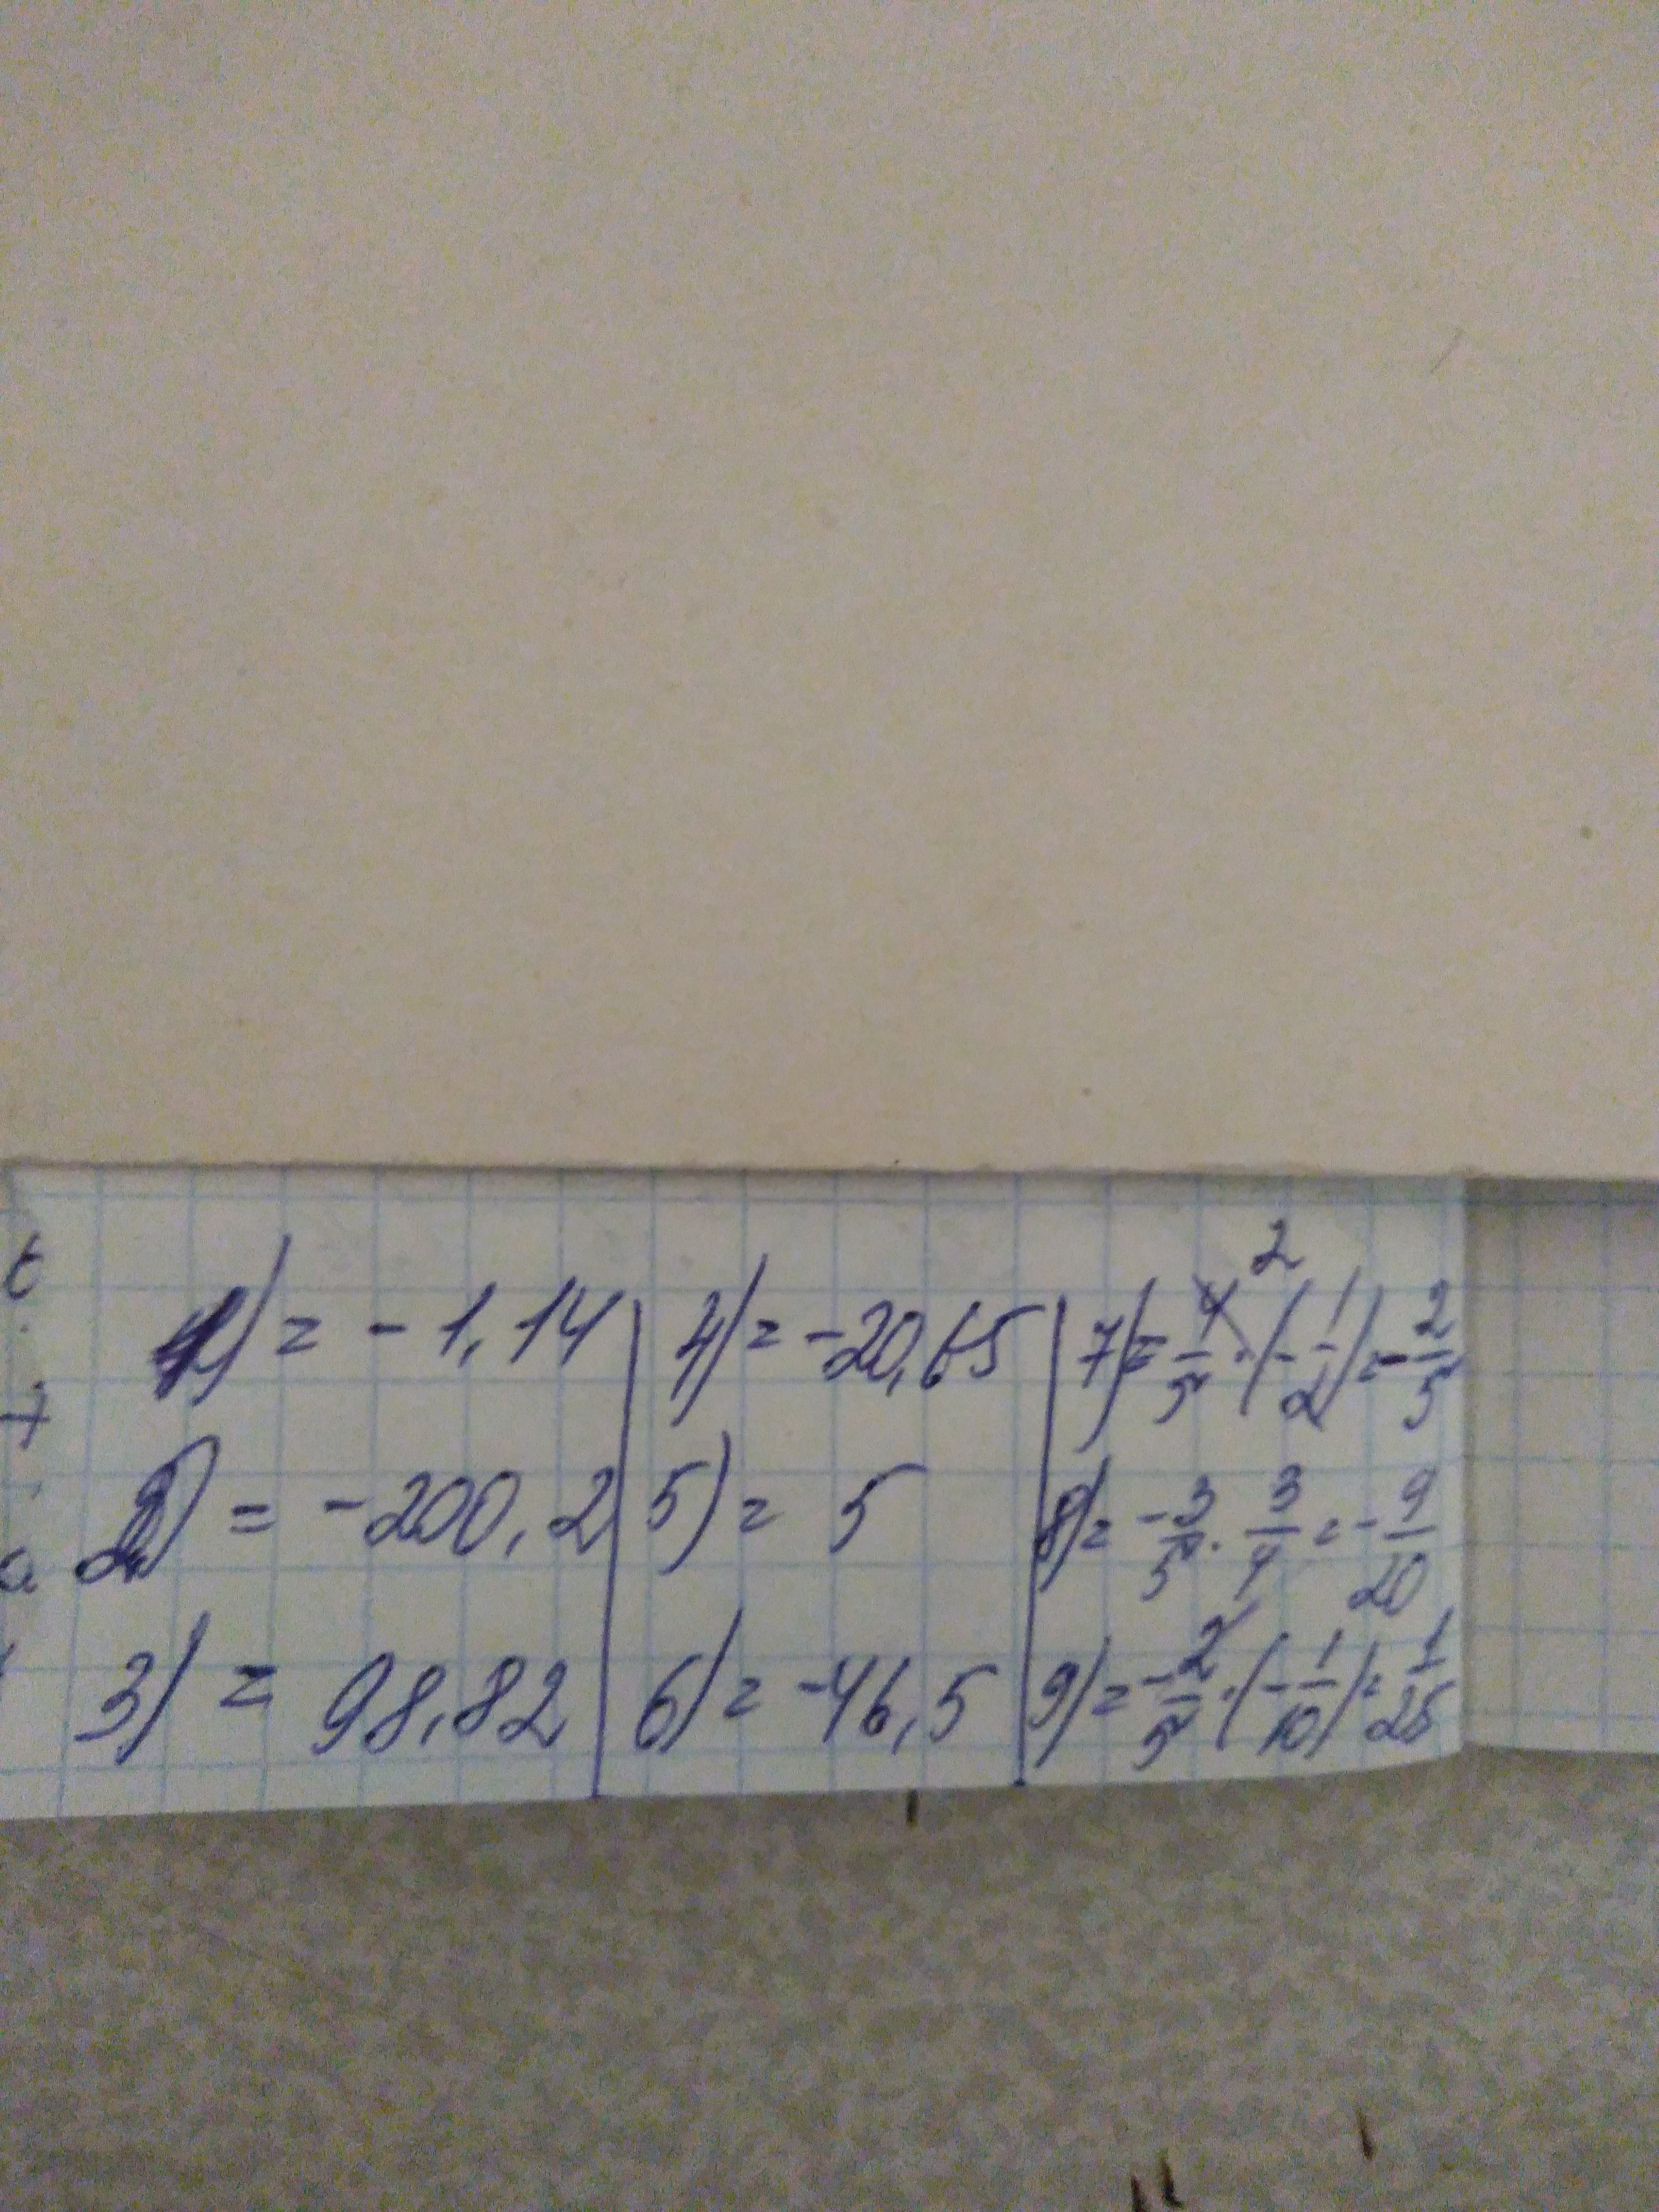 1) = -1,14
2) = -200,2
3) = 98,82
4) = -20,65
5) = 5
6) = -46,5
7) = 4/5 · (-1/2) = -2/5
2
8) = -3/5 · 3/4 = -9/20
9) = -2/5 · (-1/10) = 1/25